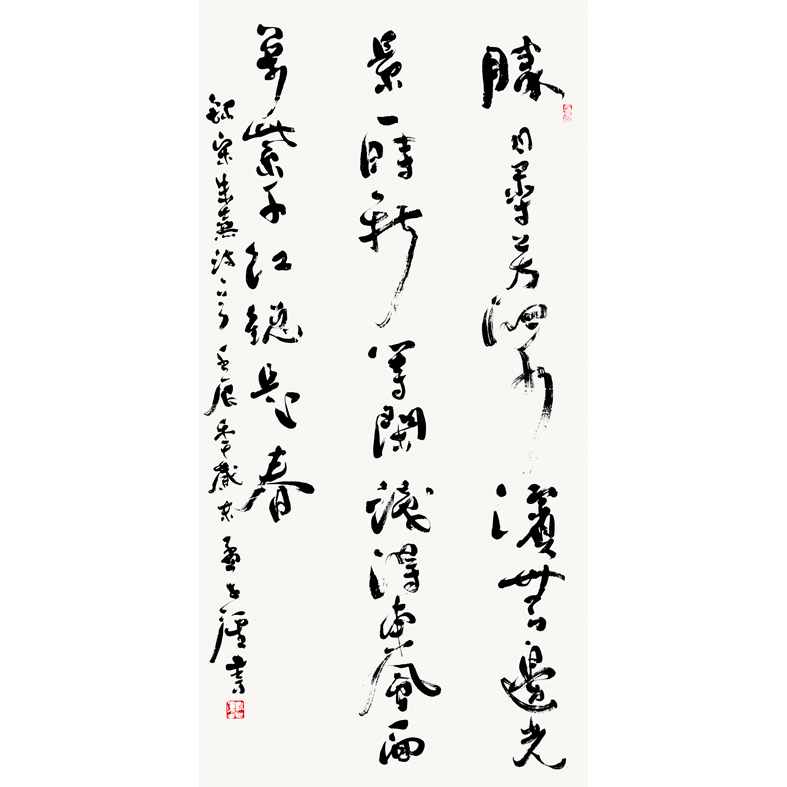 勝日尋芳泗水濱無邊光
景一時新等閑識得東風面
萬紫千紅總是春
錄宋朱熹詩 壬辰季歲末 孟 書